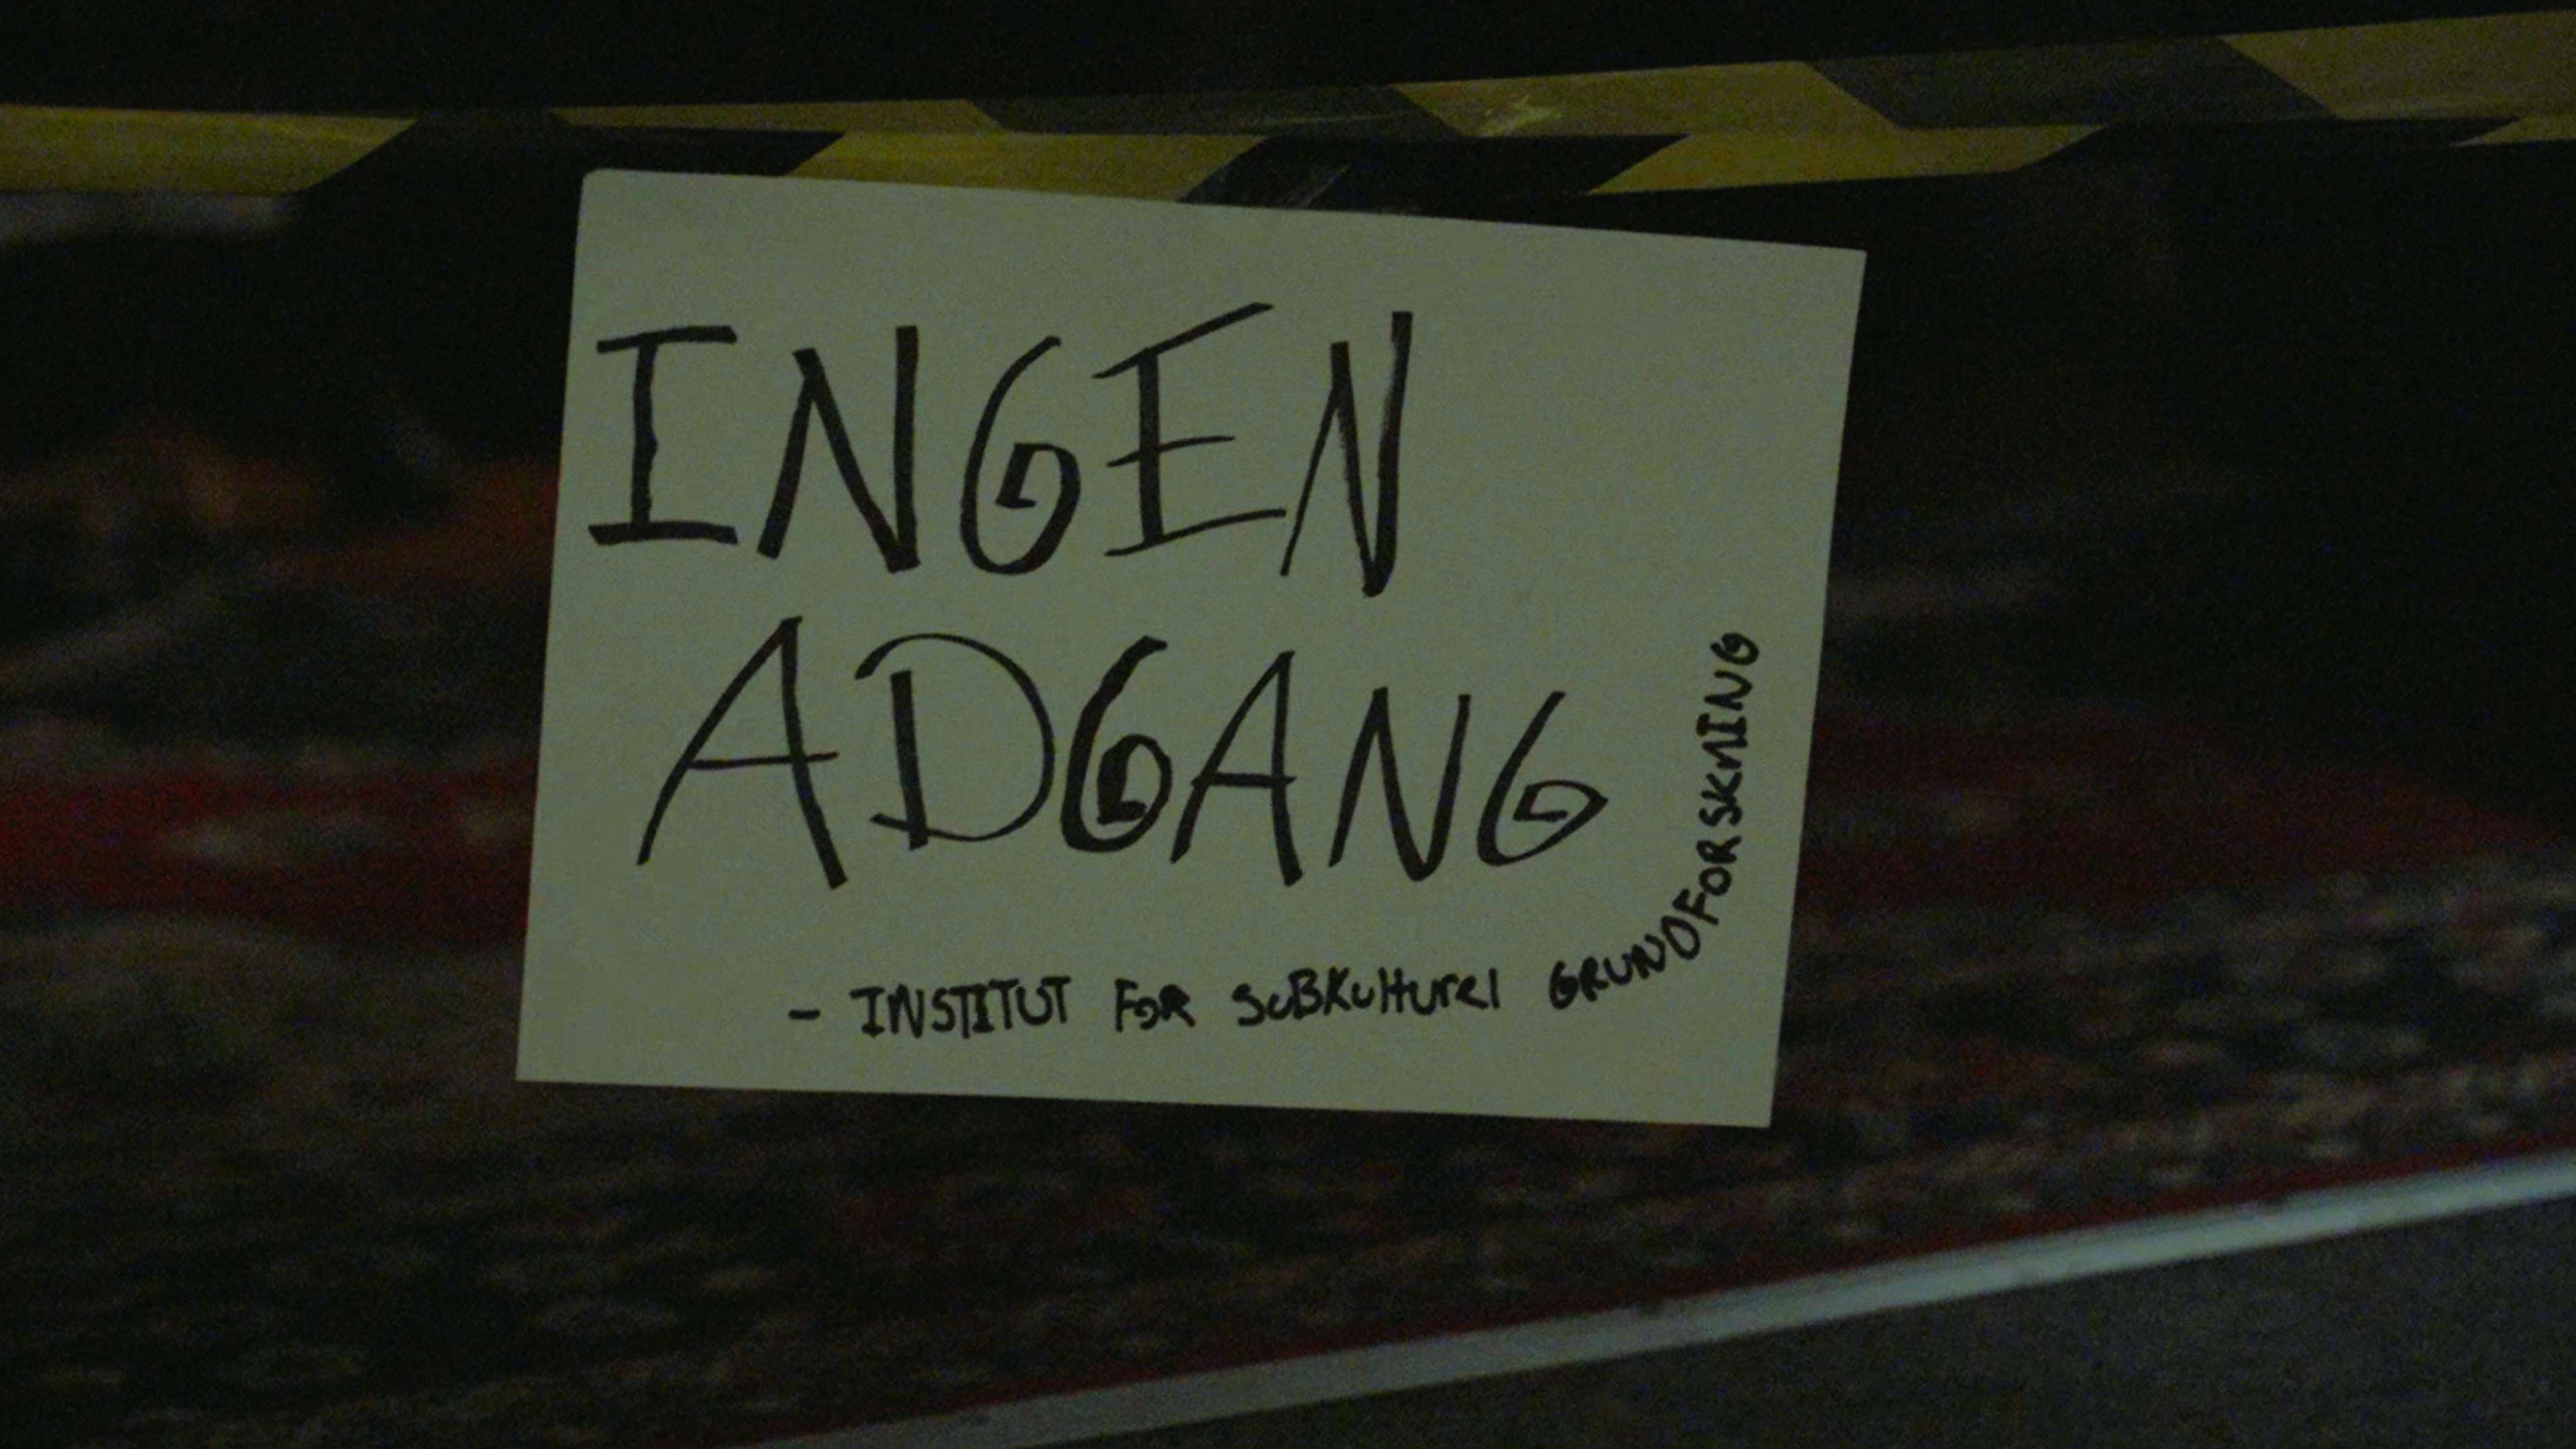 INGEN
ADGANG
- INSTITUT FOR SUBKulturel GRUNDFORSKNING